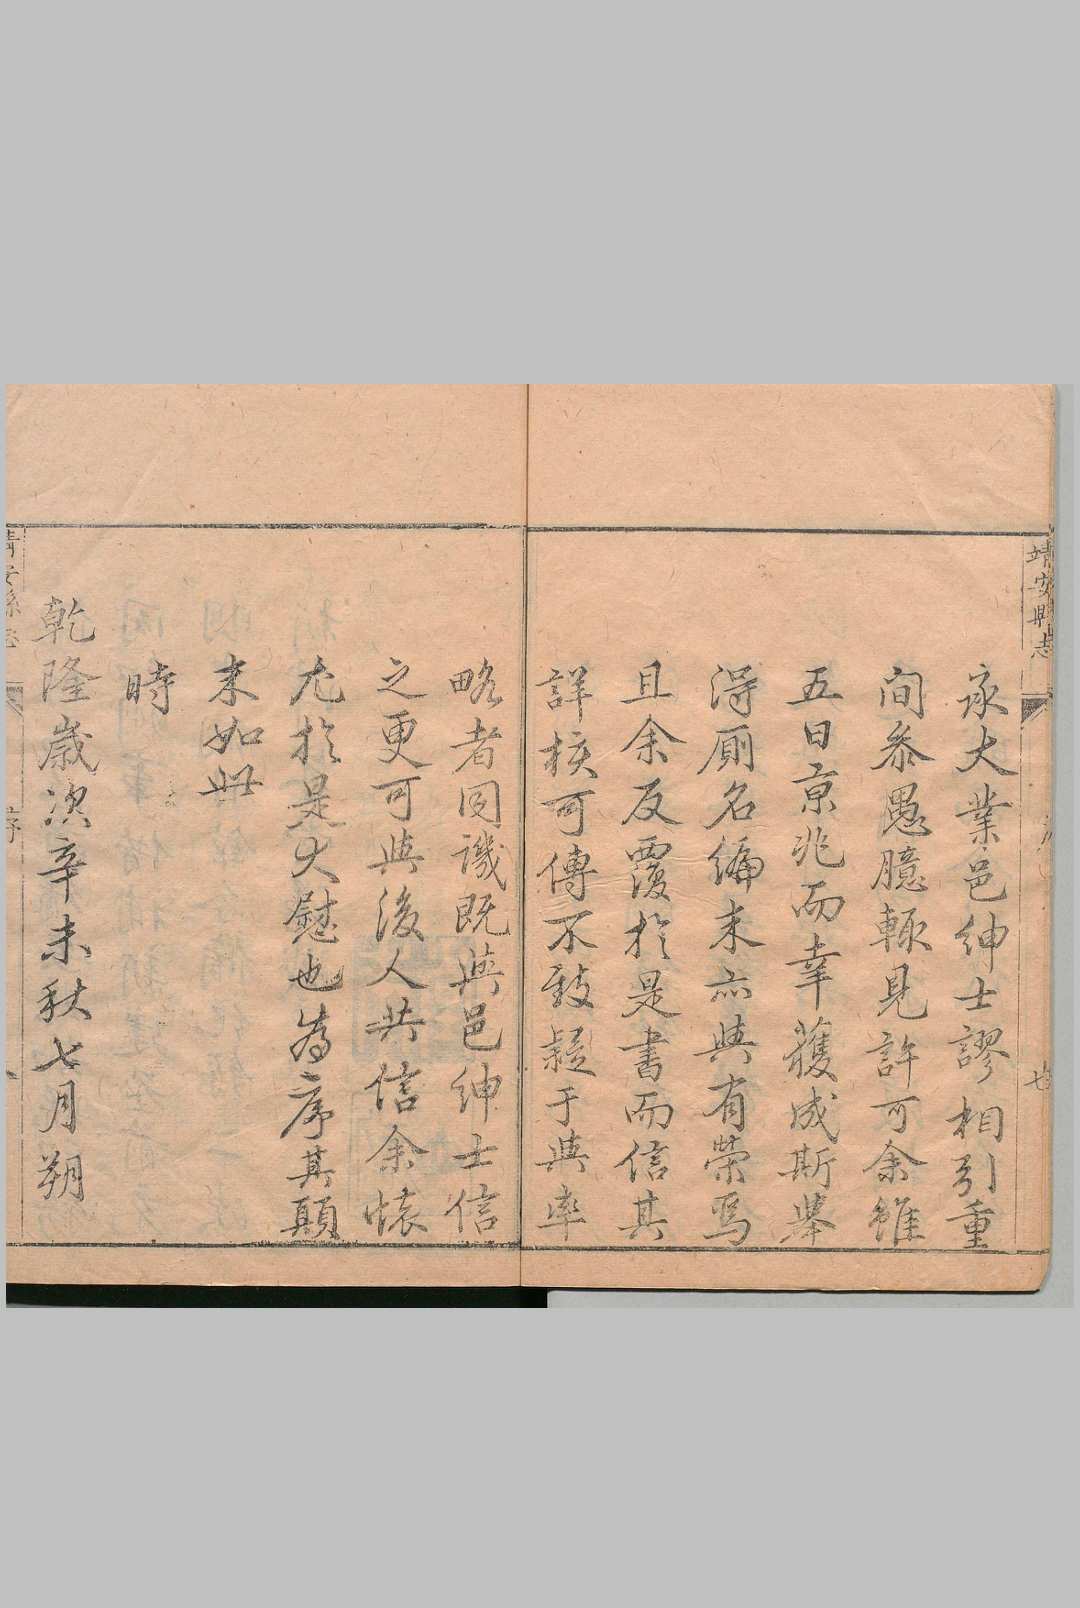 靖安縣志
七
永大業邑紳士謬相引重
間參愚臆輒見許可余雖
五日京兆而幸獲成斯舉
得廁名編末亦與有榮焉
且余反覆於是書而信其
詳核可傳不致疑于與率
略者同譏既與邑紳士信
之更可與後人共信余懷
尤於是大慰也為序其顛
末如此
時
乾隆歲次辛未秋七月朔
靖安縣志
序